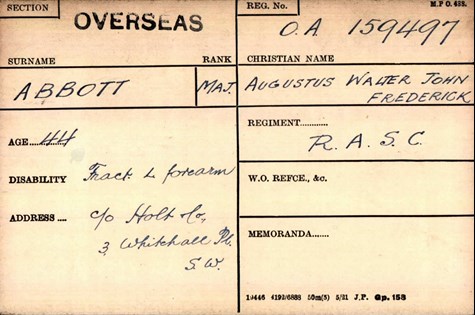 SECTION
OVERSEAS
REG. No.
O.A 159497
M.P O. 488.
SURNAME
RANK
CHRISTIAN NAME
ABBOTT
MAJ.
AUGUSTUS WALTER JOHN
FREDERICK
AGE
44
REGIMENT
R. A. S. C.
DISABILITY
Fract. L forearm
W.O. REFCE., &c.
ADDRESS
c/o Holt & Co,
3, Whitehall Pl.
S.W.
MEMORANDA
19446 4192/6888 50m(5) 5/21 J.P. Gp. 158